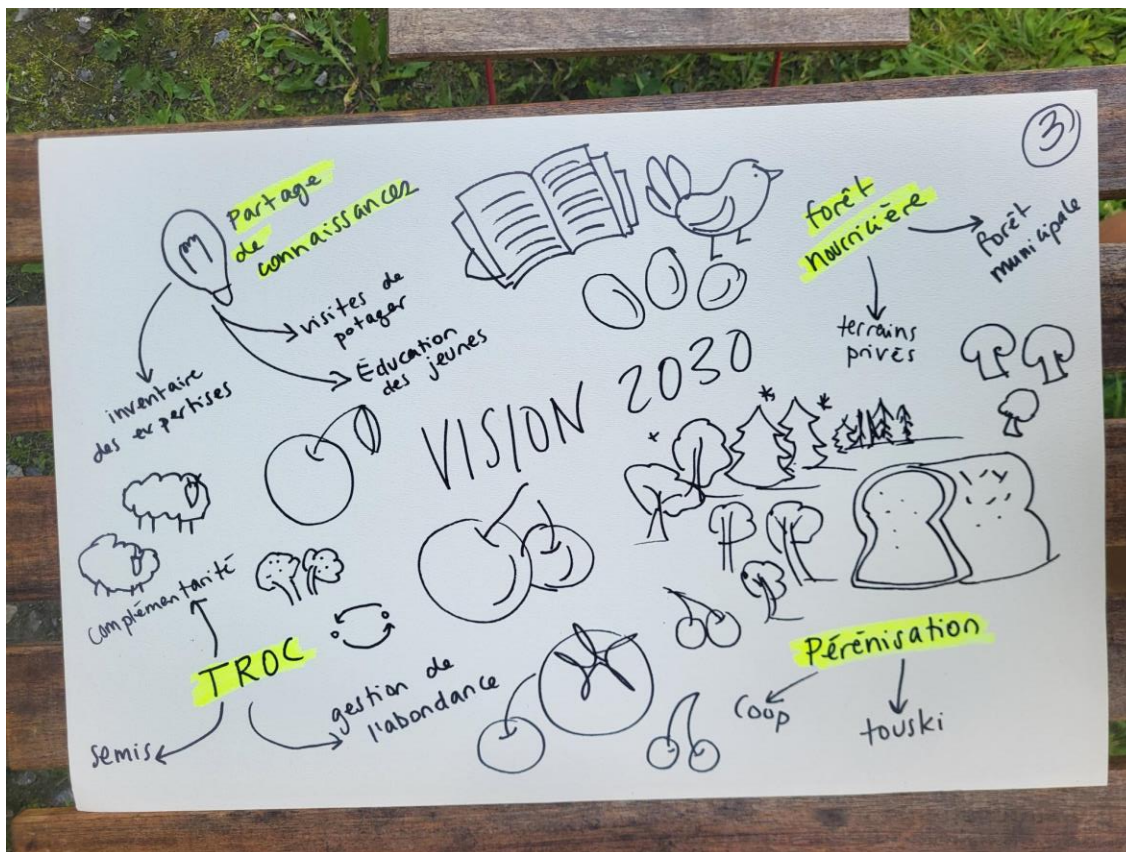 3
Partage
de
connaissances
visites de
potager
Éducation
des jeunes
inventaire
des expertises
forêt
nourricière
forêt
municipale
terrains
privés
VISION 2030
complémentarité
TROC
semis
gestion de
l'abondance
Pérénisation
coop
touski